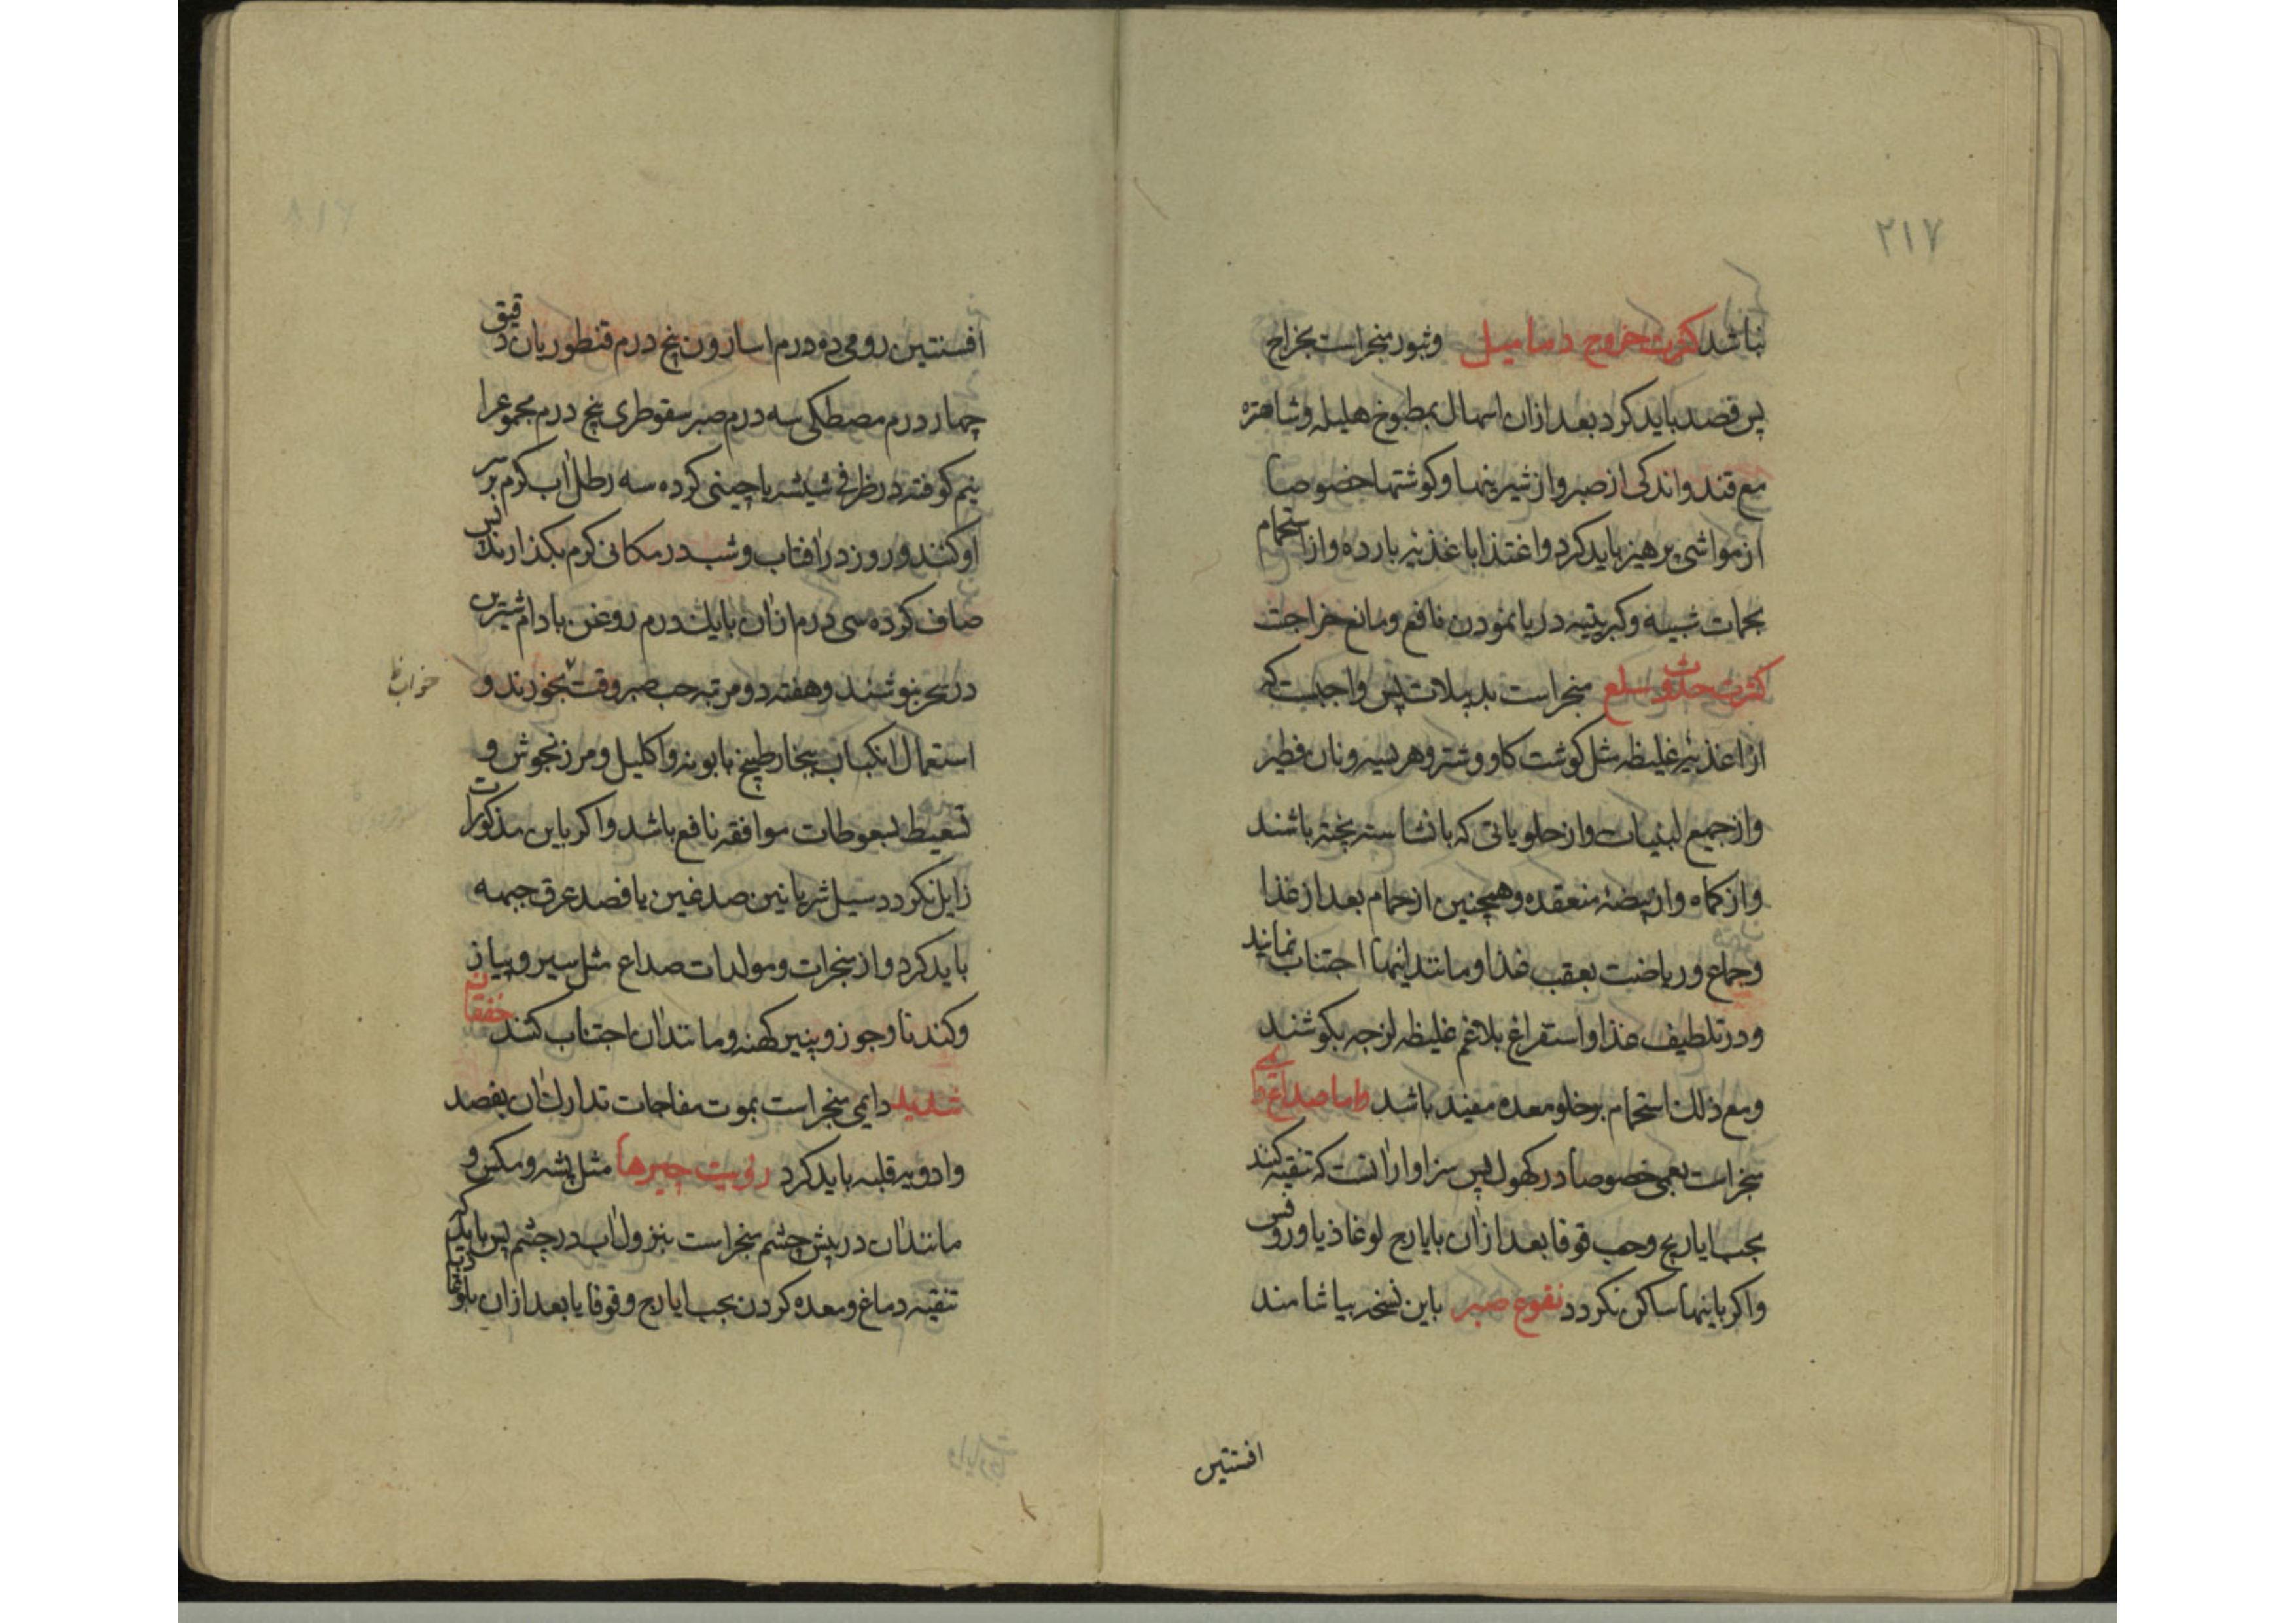 ۲۱۷
نباشد کثرت خروج دمامیل وثبور منجر است بخراج
پس فصد باید کرد بعد ازان اسهال بمطبوخ هلیله وشاهتره
مع قند واندکی از صبر واز شیرینها وکوشتها خصوصا
از مواشی پرهیز باید کرد واغتذا باغذیه بارده واز استحمام
بحمات شبیه وکبریتیه دریا نمودن نافع ومانع خراجت
کثرت حدوث سلع منجر است بدبیلات پس واجبست که
از اغذیه غلیظه مثل کوشت کاو وشتر وهریسه ونان فطیر
واز جمیع لبنیات واز حلویاتی که بانشاسته پخته باشند
واز کماه واز بیضهٔ منعقده وهمچنین از حمام بعد از غذا
وجماع وریاضت بعقب غذا ومانند اینها اجتناب نمایند
ودر تلطیف غذا واستفراغ بلاغم غلیظه لزجه بکوشند
ومع ذلک استحمام بر خلو معده مفید باشد واما صداع دایمی
منجر است بعمی خصوصا در کهول پس سزاوار آنست که تنقیه کنند
بحب ایارج وحب قوقا بعد ازان بایارج لوغاذیا وروفس
واکر باینها ساکن نکردد نقوع صبر باین نسخه بیاشامند
افسنتین
افسنتین رومی ده درم اسارون پنج درم قنطوریان دقیق
چهار درم مصطکی سه درم صبر سقوطری پنج درم مجموعرا
نیم کوفته در ظرفی شیشه یا چینی کرده سه رطل آب کرم بر سر
او کنند وروز در افتاب وشب در مکانی کرم بکذارند پس
صاف کرده سی درم ازان بایک درم روغن بادام شیرین
در سحر بنوشند وهفته دو مرتبه حب صبر وقت بخورند و
خواب ظ
استعمال انکباب ببخار طبیخ بابونه واکلیل ومرزنجوش و
تسعیط بسعوطات موافقه نافع باشد واکر باین مذکورات
زایل نکردد سیل شریانین صدغین یا فصد عرق جبهه
باید کرد واز منجرات ومولدات صداع مثل سیر وپیاز
وکندنا وجوز وپنیر کهنه ومانند ان اجتناب کنند خفقان
شدید دایمی منجر است بموت مفاجات تدارک ان بفصد
وادویه قلبیه باید کرد رؤیت چیزها مثل پشه ومکس و
مانند ان در پیش چشم منجر است بنزول آب در چشم پس باید که
تنقیه دماغ ومعده کردن بحب ایارج وقوقایا بعد ازان